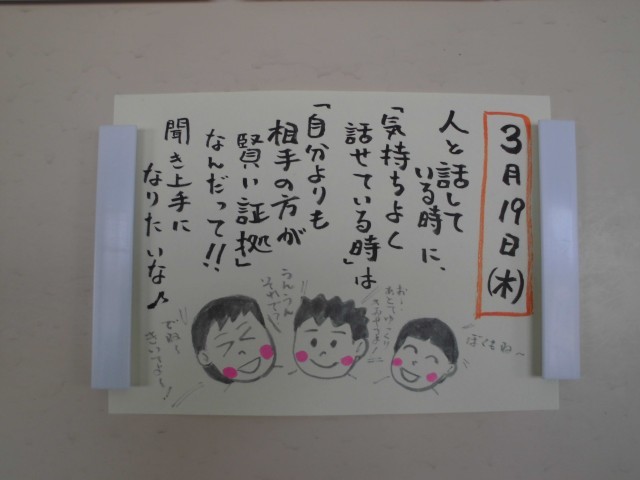 3月19日(木)
人と話して
いる時に、
「気持ちよく
話せている時」は
「自分よりも
相手の方が
賢い証拠」
なんだって!!
聞き上手に
なりたいな♪
ぼくもね〜
お〜
あとでゆっくり
うん、うん
それで?
でね〜
きいてよ〜!